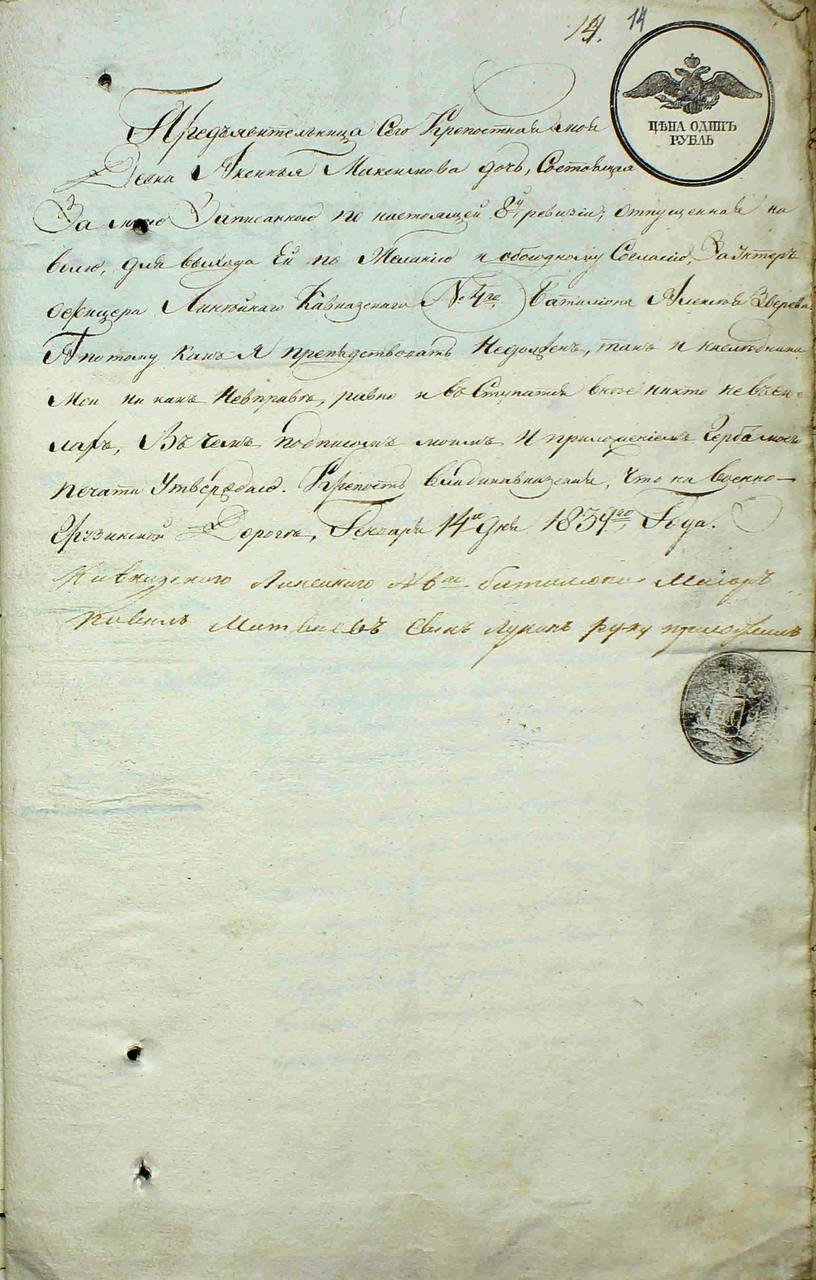 14. 14
ЦѢНА ОДИНЪ
РУБЛЬ
Предъявительница Сего Крепостная моя
Девка Аксинья Максимова дочь, Состоящая
За мною Записанною по настоящей 8й ревизіи, отпущенная на
волю, для выхода Ей по Желанію и обоюдному Согласію, За Унтеръ
Офицера Линѣйнаго Кавказскаго №4го баталіона Алексѣя Зверева
А потому какъ я препядствовать Недолжен, такъ и наследники
Мои ни какъ Невправѣ, равно и въ Ступатся въ нее никто невъси-
лахъ, Въ чемъ подписомъ моимъ И приложеніемъ Герба моей
печати Утверждаю. Крѣпость Владикавказская, Что на военно-
Грузинской Дорогѣ, Генваря 14го дня 1839го Года.
Кавказского Линейного №6го баталіона Маіоръ
Павелъ Матвеевъ Сынъ Лукинъ руку приложилъ